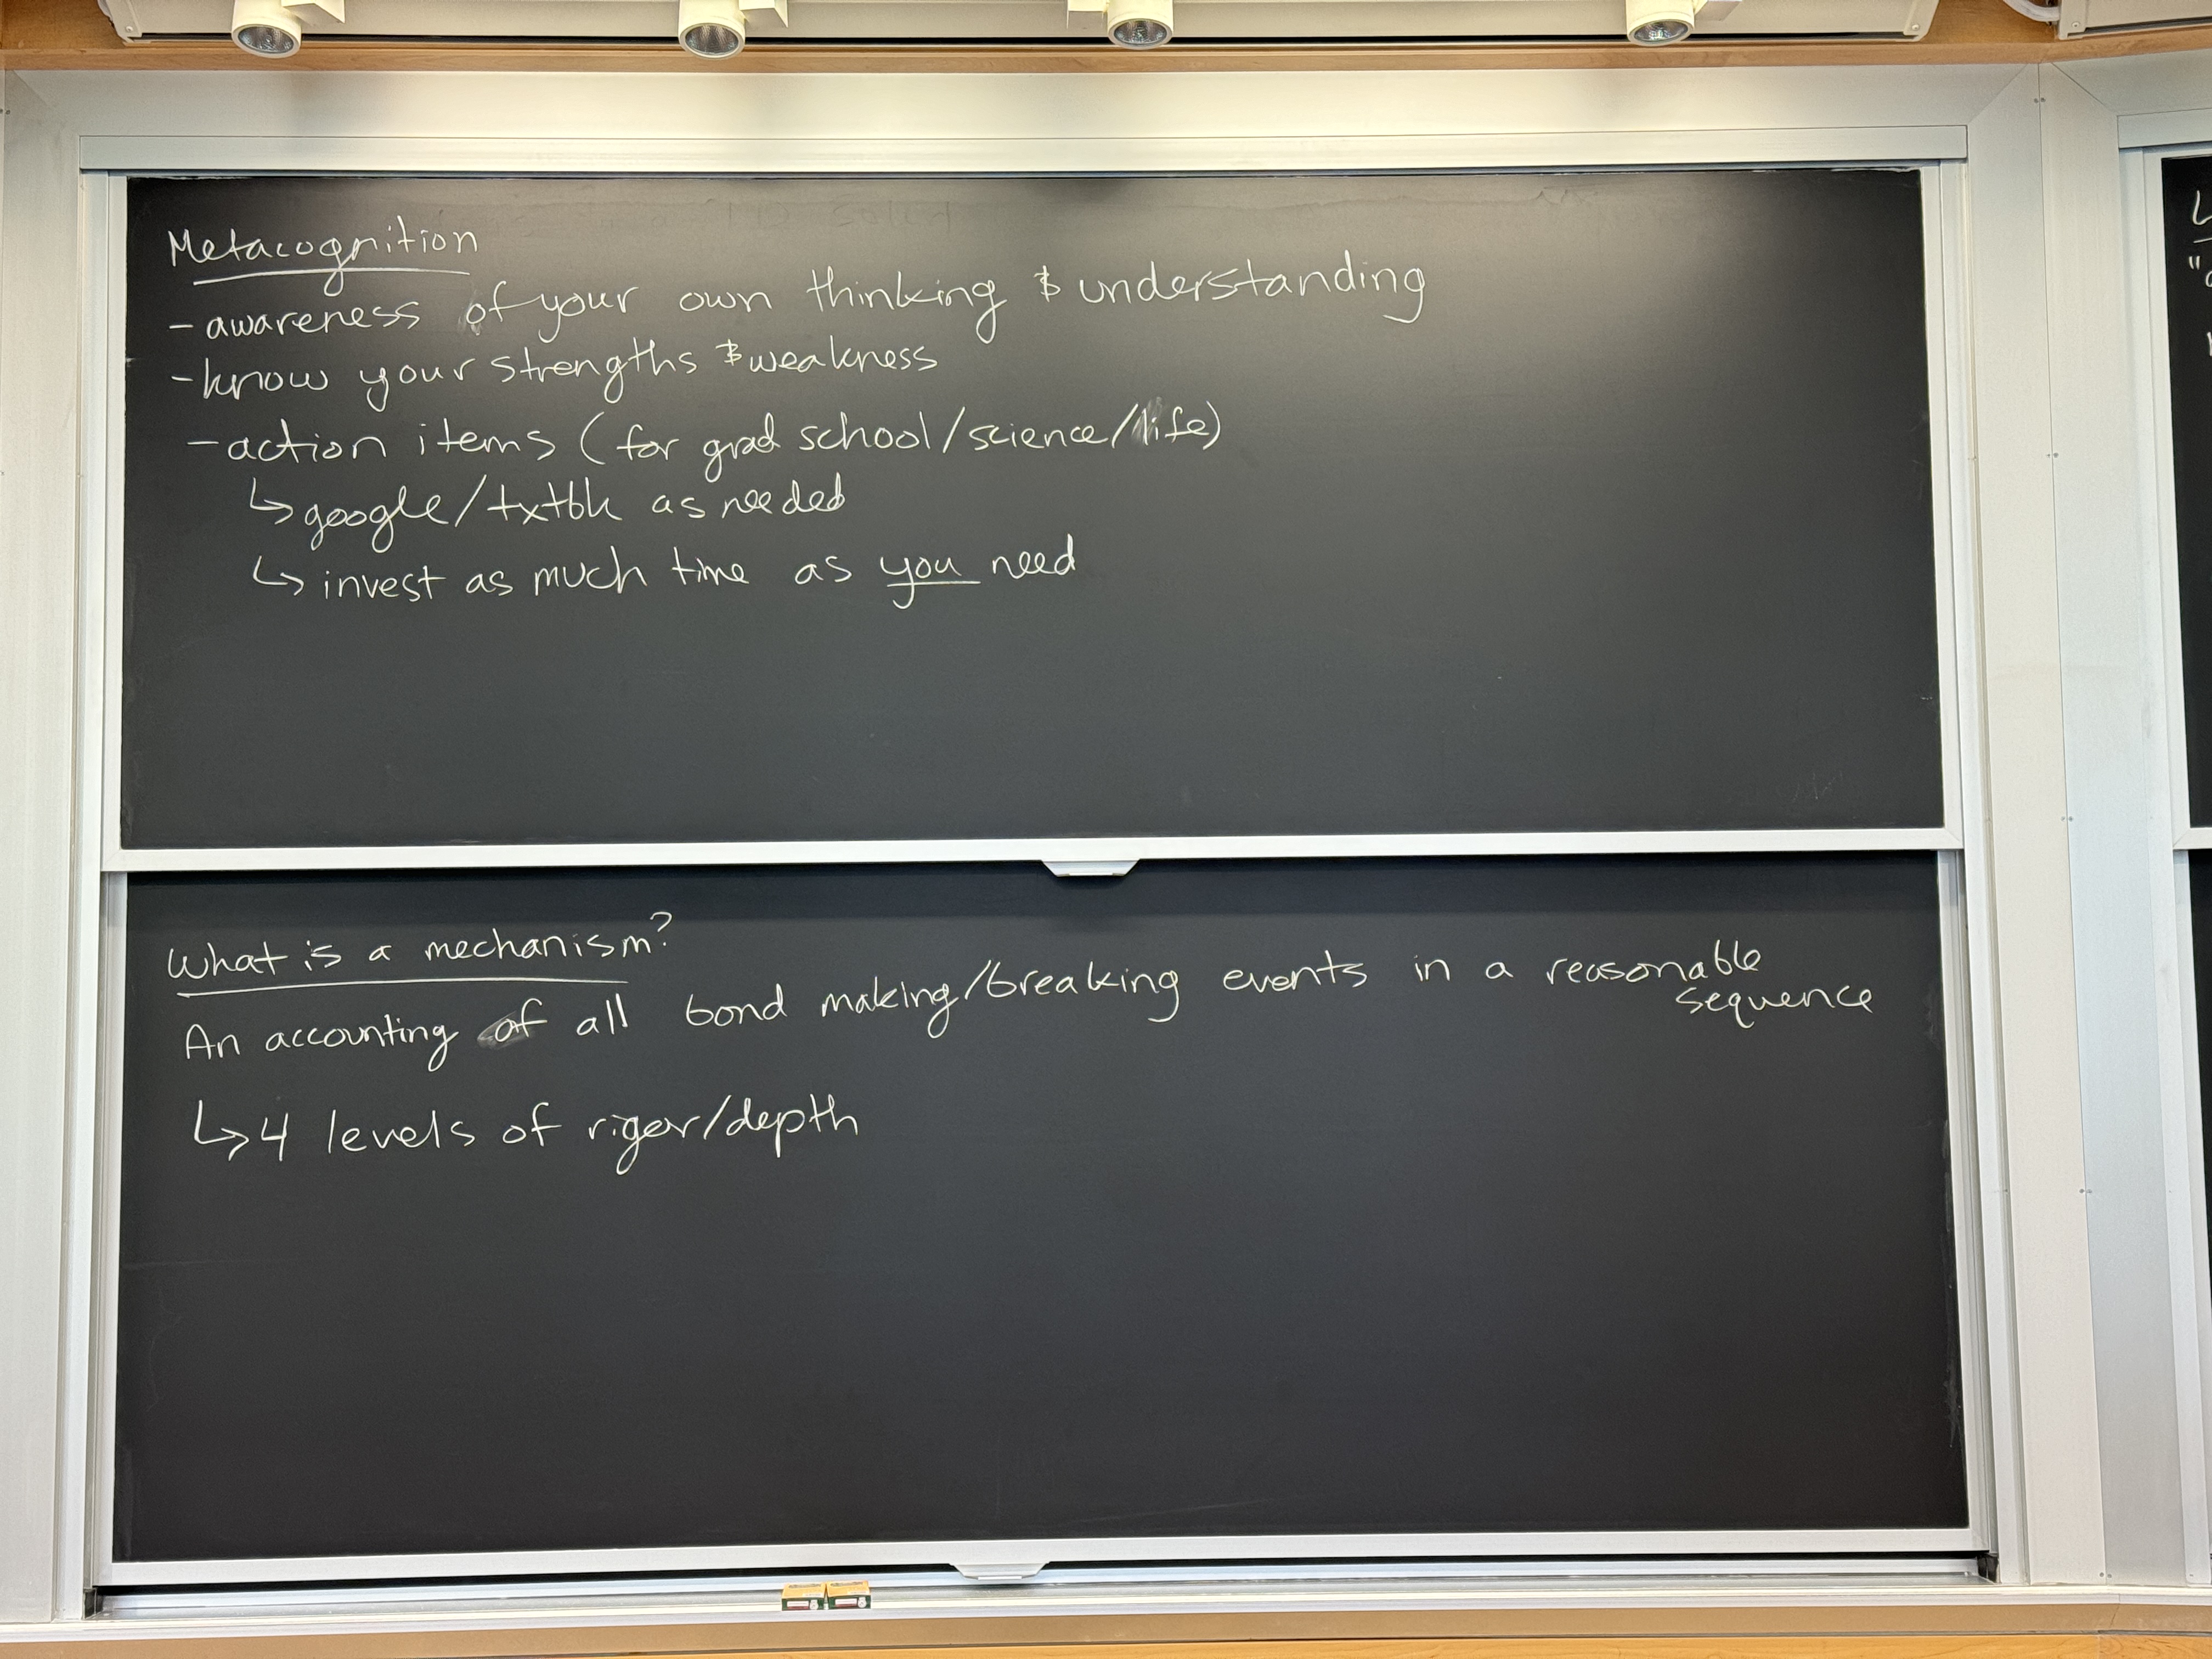 Metacognition
- awareness of your own thinking & understanding
- know your strengths & weakness
- action items (for grad school/science/life)
↳ google/txtbk as needed
↳ invest as much time as you need
What is a mechanism?
An accounting of all bond making/breaking events in a reasonable
sequence
↳ 4 levels of rigor/depth